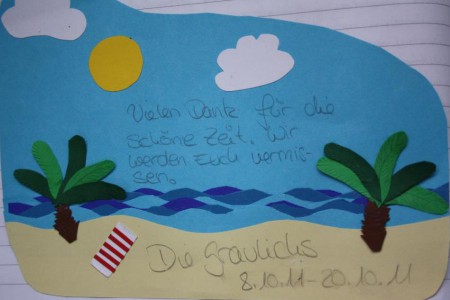 Vielen Dank für die
schöne Zeit. Wir
werden Euch vermis-
sen.
Die Graulichs
8.10.11-20.10.11